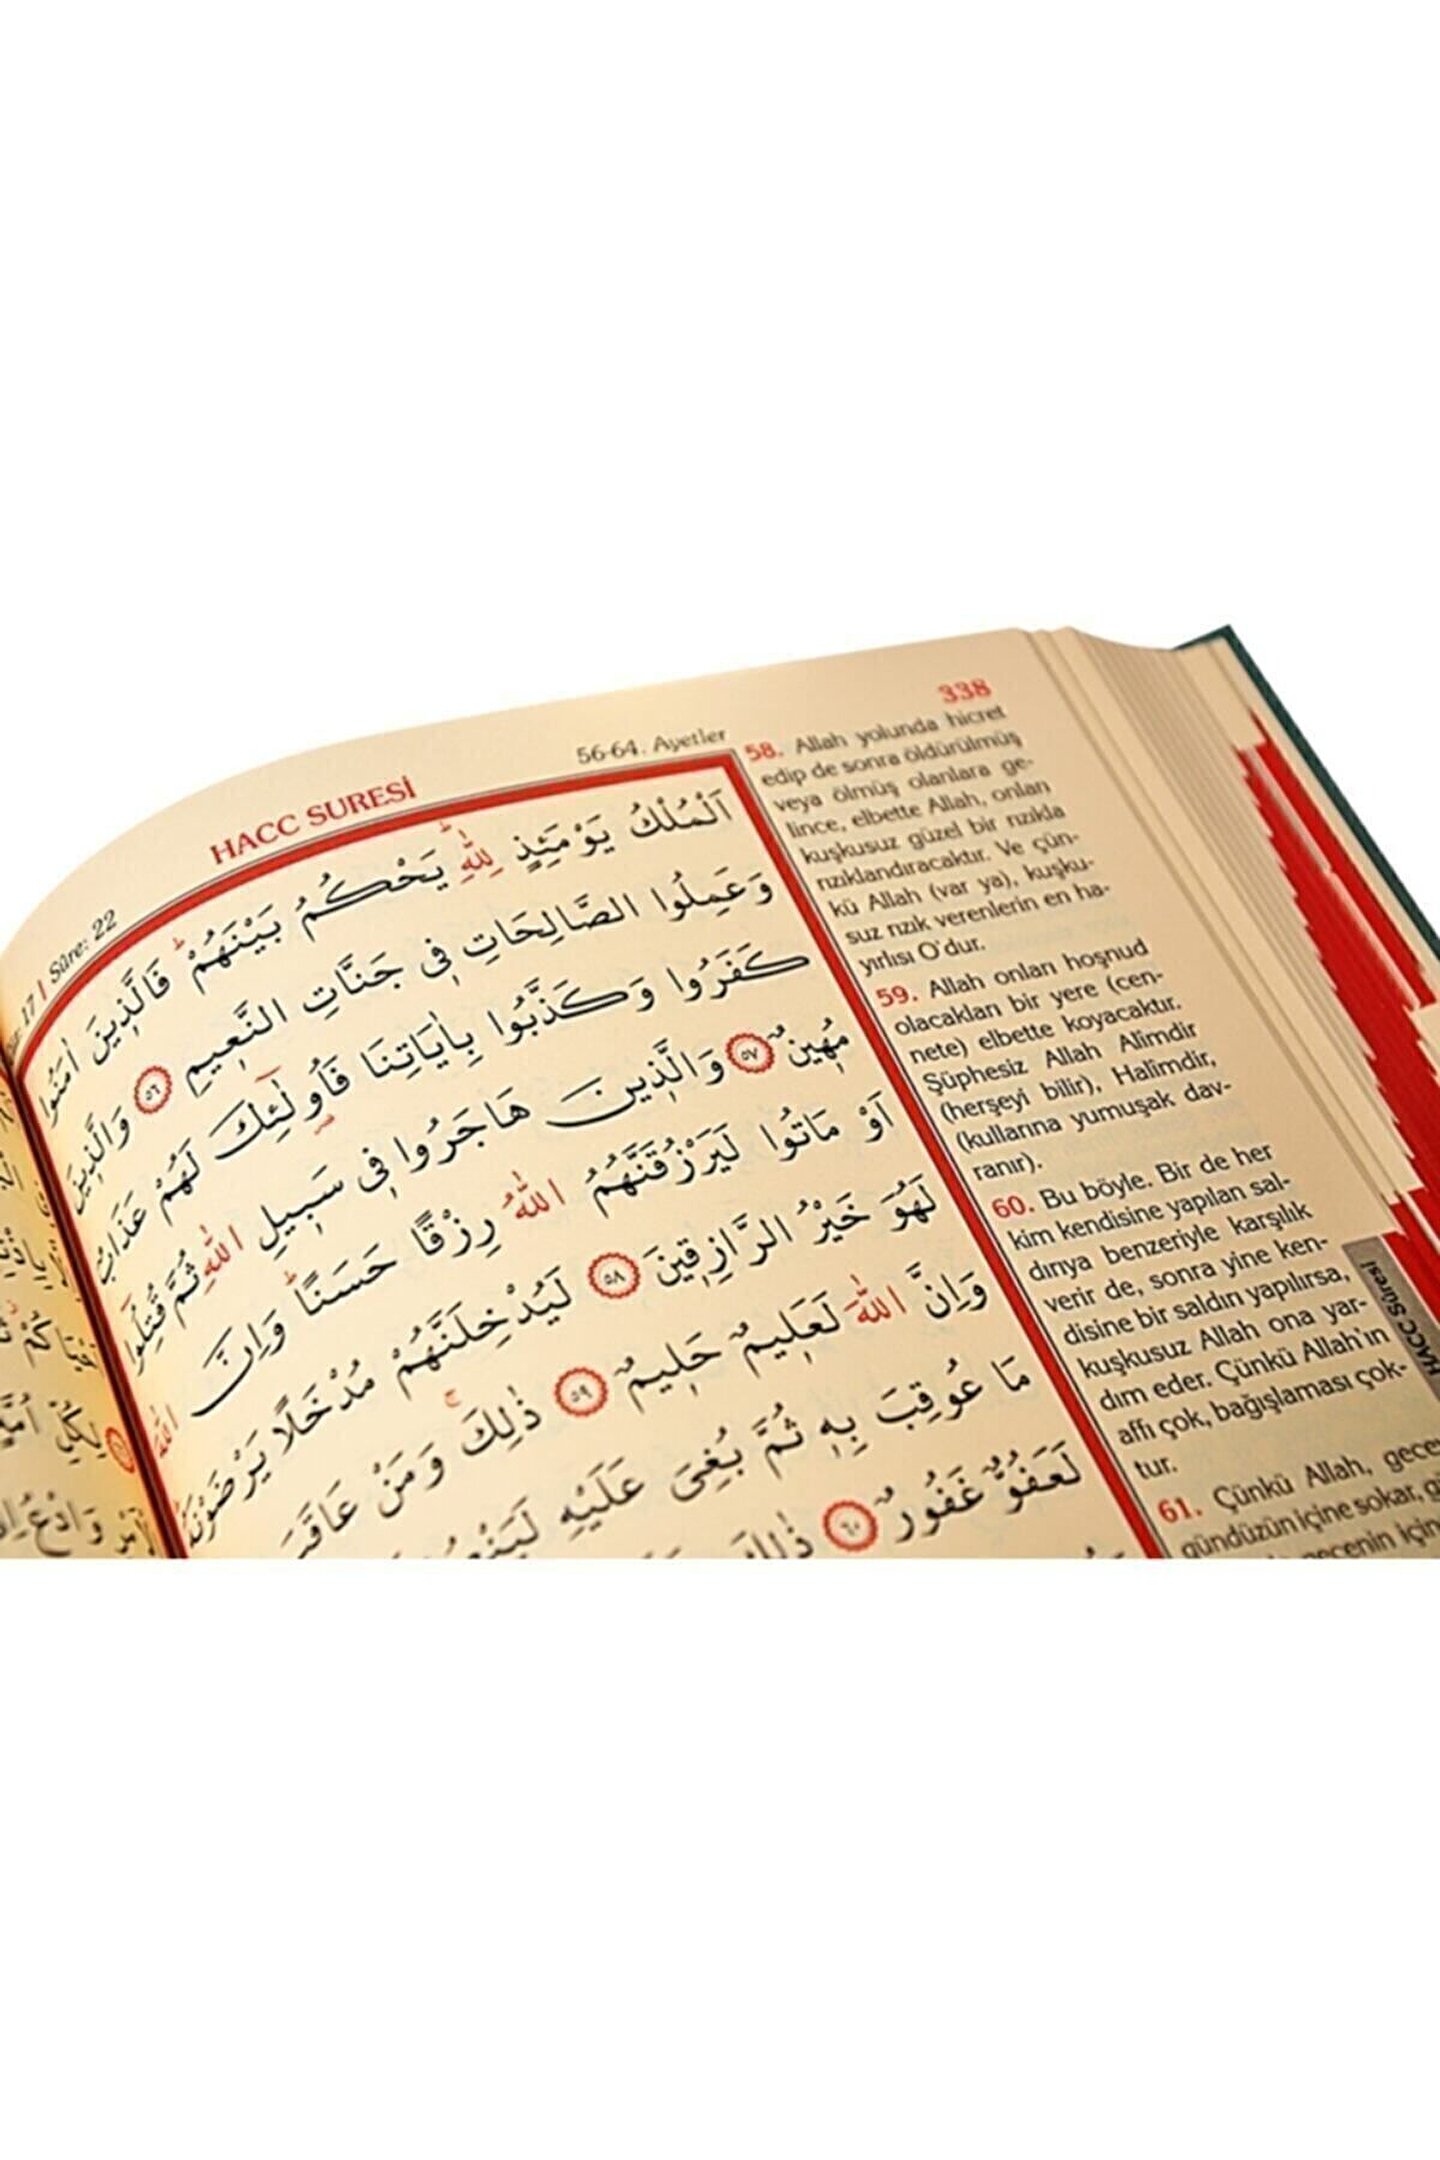 338
56-64. Ayetler
HACC SURESİ
17 | Sûre: 22
اَلْمُلْكُ يَوْمَئِذٍ لِلّٰهِ يَحْكُمُ بَيْنَهُمْ فَالَّذِينَ اٰمَنُوا
وَعَمِلُوا الصَّالِحَاتِ فِي جَنَّاتِ النَّعِيمِ ٥٦ وَالَّذِينَ
كَفَرُوا وَكَذَّبُوا بِاٰيَاتِنَا فَاُولٰٓئِكَ لَهُمْ عَذَابٌ
مُهِينٌ ٥٧ وَالَّذِينَ هَاجَرُوا فِي سَبِيلِ اللّٰهِ ثُمَّ قُتِلُوا
اَوْ مَاتُوا لَيَرْزُقَنَّهُمُ اللّٰهُ رِزْقًا حَسَنًا وَاِنَّ اللّٰهَ
لَهُوَ خَيْرُ الرَّازِقِينَ ٥٨ لَيُدْخِلَنَّهُمْ مُدْخَلًا يَرْضَوْنَهُ
وَاِنَّ اللّٰهَ لَعَلِيمٌ حَلِيمٌ ٥٩ ذٰلِكَ وَمَنْ عَاقَبَ
مَا عُوقِبَ بِهِ ثُمَّ بُغِيَ عَلَيْهِ
لَعَفُوٌّ غَفُورٌ ٦٠ ذٰلِكَ
58. Allah yolunda hicret
edip de sonra öldürülmüş
veya ölmüş olanlara ge-
lince, elbette Allah, onları
kuşkusuz güzel bir rızıkla
rızıklandıracaktır. Ve çün-
kü Allah (var ya), kuşku-
suz rızık verenlerin en ha-
yırlısı O'dur.
59. Allah onları hoşnud
olacakları bir yere (cen-
nete) elbette koyacaktır.
Şüphesiz Allah Alîmdir
(herşeyi bilir), Halîmdir,
(kullarına yumuşak dav-
ranır).
60. Bu böyle. Bir de her
kim kendisine yapılan sal-
dırıya benzeriyle karşılık
verir de, sonra yine ken-
disine bir saldırı yapılırsa,
kuşkusuz Allah ona yar-
dım eder. Çünkü Allah'ın
affı çok, bağışlaması çok-
tur.
61. Çünkü Allah,
gündüzün içine sokar,
gecenin
HACC Sûresi